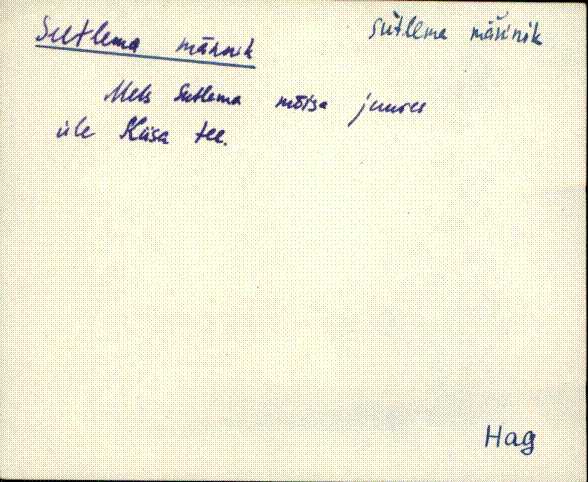 Sutlema männik
sùtlema mäńnik
Mets Sutlema mõisa juures
üle Kiisa tee.
Hag